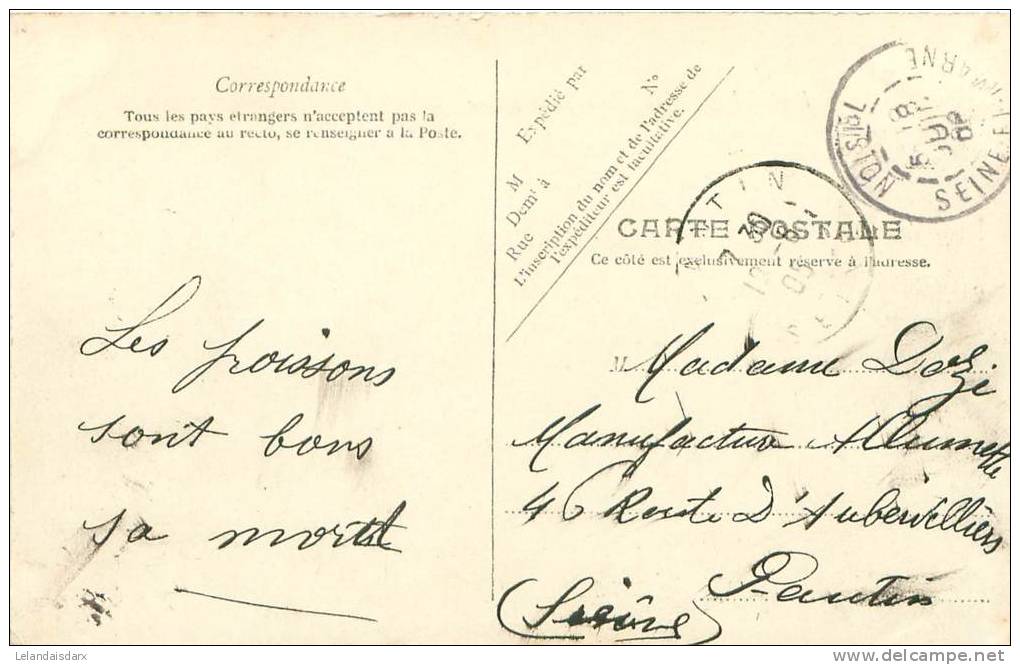 Correspondance
Tous les pays étrangers n'acceptent pas la
correspondance au recto, se renseigner à la Poste.
Les poissons
sont bons
sa mort
Expédié par
M
Demt à
Rue N°
L'inscription du nom et de l'adresse de
l'expéditeur est facultative.
CARTE POSTALE
Ce côté est exclusivement réservé à l'adresse.
M Madame Dozi
Manufacture Allumette
46 Route D'Aubervilliers
Pantin
(Seine)
SEINE-ET-MARNE
Lelandaisdarx
delcampe.net